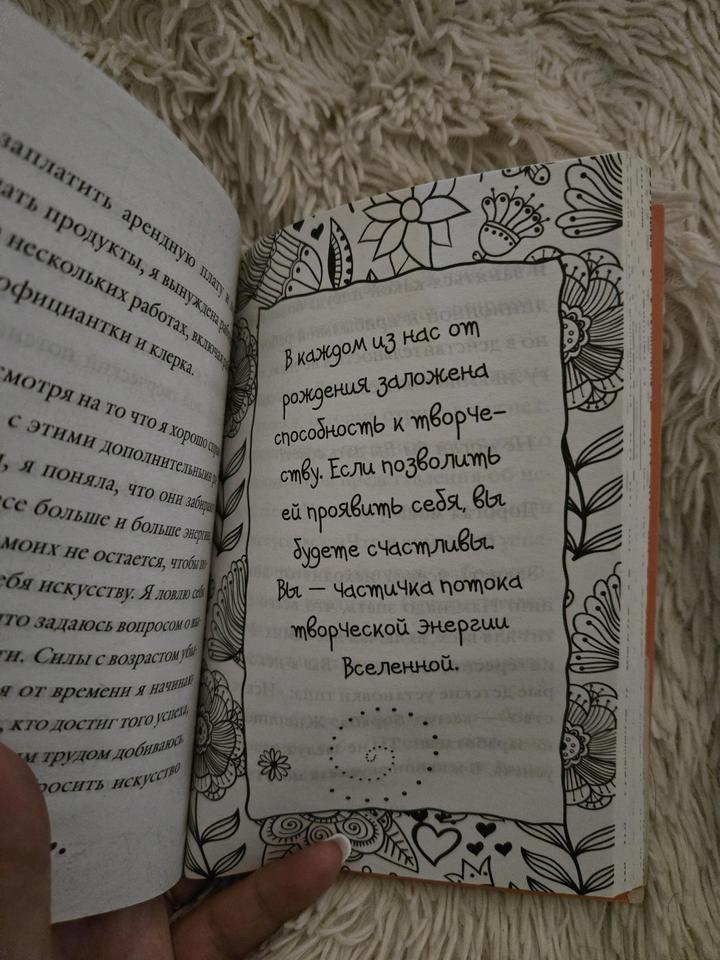 заплатить арендную плату и
продукты, я вынуждена
нескольких работах, включая
официантки и клерка.
на то что я хорошо
с этими дополнительными
я поняла, что они
больше и больше
моих не остается, чтобы
искусству. Я ловлю себя
задаюсь вопросом о
Силы с возрастом
от времени я начинаю
кто достиг того успеха,
трудом добиваюсь
искусство
В каждом из нас от
рождения заложена
способность к творче-
ству. Если позволить
ей проявить себя, вы
будете счастливы.
Вы — частичка потока
творческой энергии
Вселенной.